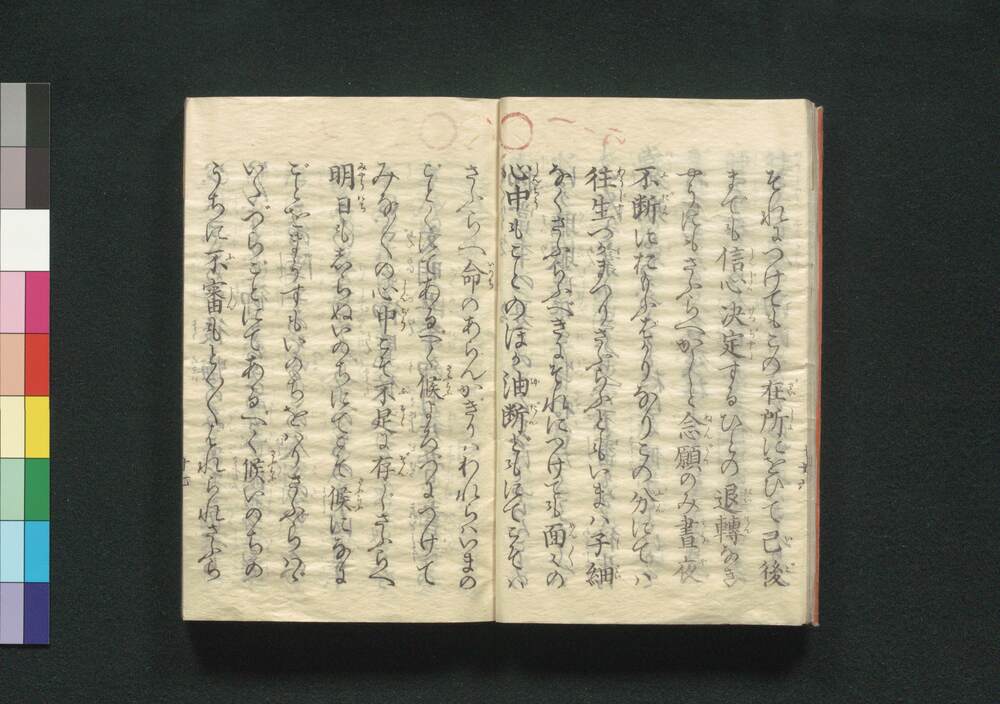 それにつけてもこの在所にをひて已後
までも信心決定するひとの退轉なき
やうにもさふらへかしと念願のみ晝夜
不断におもふばかりなりこの分にてハ
往生つかまつりさふらふともいまハ子細
なくさふらふべきにそれにつけても面々の
心中もことのほか油断どもにてこそハ
さふらへ命のあらんかぎりハわれらハいまの
ごとくにてあるべく候よろづにつけて
みな〳〵の心中こそ不足に存じさふらへ
明日もしらぬいのちにてこそ候になに
ごとをまうすもいのちをハりさふらハゞ
いたづらごとにてあるべく候いのちの
うちに不審もとく〳〵はれられさふら